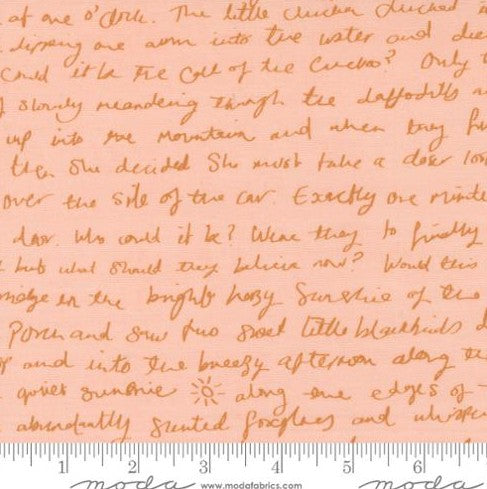 at one o'clock. The little chicken clucked
dipping one arm into the water and
could it be the call of the Cuckoo? Only
slowly meandering through the daffodils
up into the mountain and when they
then she decided she must take a closer
over the side of the car. Exactly one minute
door. Who could it be? Were they to finally
but what should they believe now? Would this
in the bright hazy Sunshine of the
Porch and saw two sweet little blackbirds
and into the breezy afternoon along the
quiet sunshine along the edges of
abundantly scented foxgloves and
1 2 3 4 5 6
moda www.modafabrics.com moda